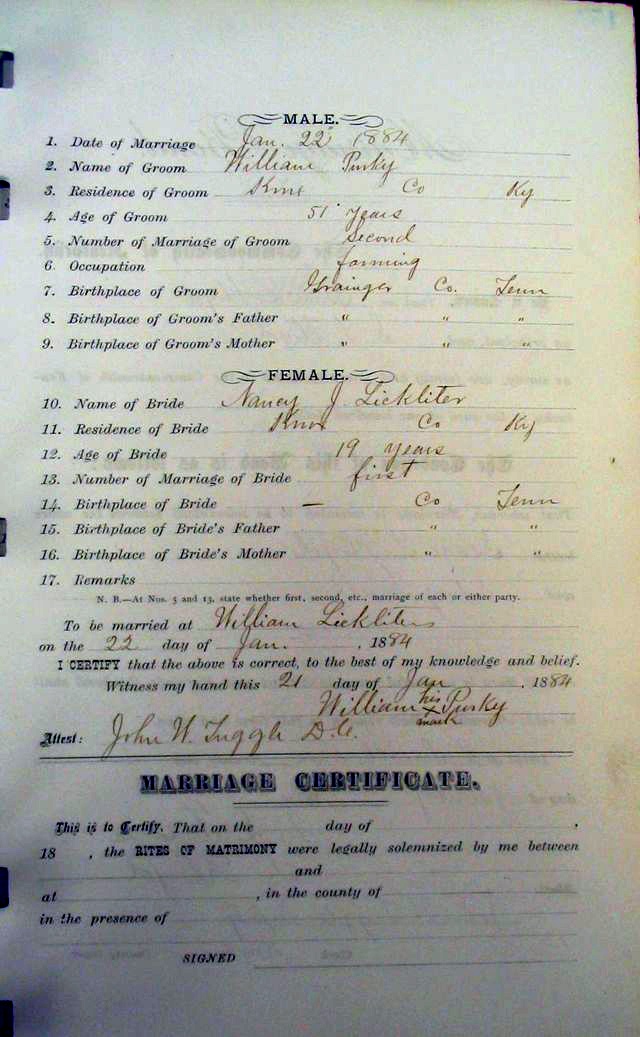 MALE.
1. Date of Marriage Jan. 22 1884
2. Name of Groom William Pursky
3. Residence of Groom Knox Co Ky
4. Age of Groom 51 years
5. Number of Marriage of Groom Second
6. Occupation farming
7. Birthplace of Groom Grainger Co. Tenn
8. Birthplace of Groom's Father " " "
9. Birthplace of Groom's Mother " " "
FEMALE.
10. Name of Bride Nancy J. Lickliter
11. Residence of Bride Knox Co Ky
12. Age of Bride 19 years
13. Number of Marriage of Bride first
14. Birthplace of Bride — Co Tenn
15. Birthplace of Bride's Father " "
16. Birthplace of Bride's Mother " "
17. Remarks
N. B.—At Nos. 5 and 13, state whether first, second, etc., marriage of each or either party.
To be married at William Lickliters
on the 22 day of Jan. , 1884
I CERTIFY that the above is correct, to the best of my knowledge and belief.
Witness my hand this 21 day of Jan , 1884
William his x mark Pursky
Attest: John W. Tuggle D.C.
MARRIAGE CERTIFICATE.
This is to Certify, That on the day of ,
18 , the RITES OF MATRIMONY were legally solemnized by me between
and
at , in the county of
in the presence of
SIGNED